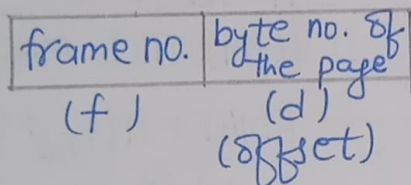 frame no. byte no. of
the page
(f) (d)
(offset)